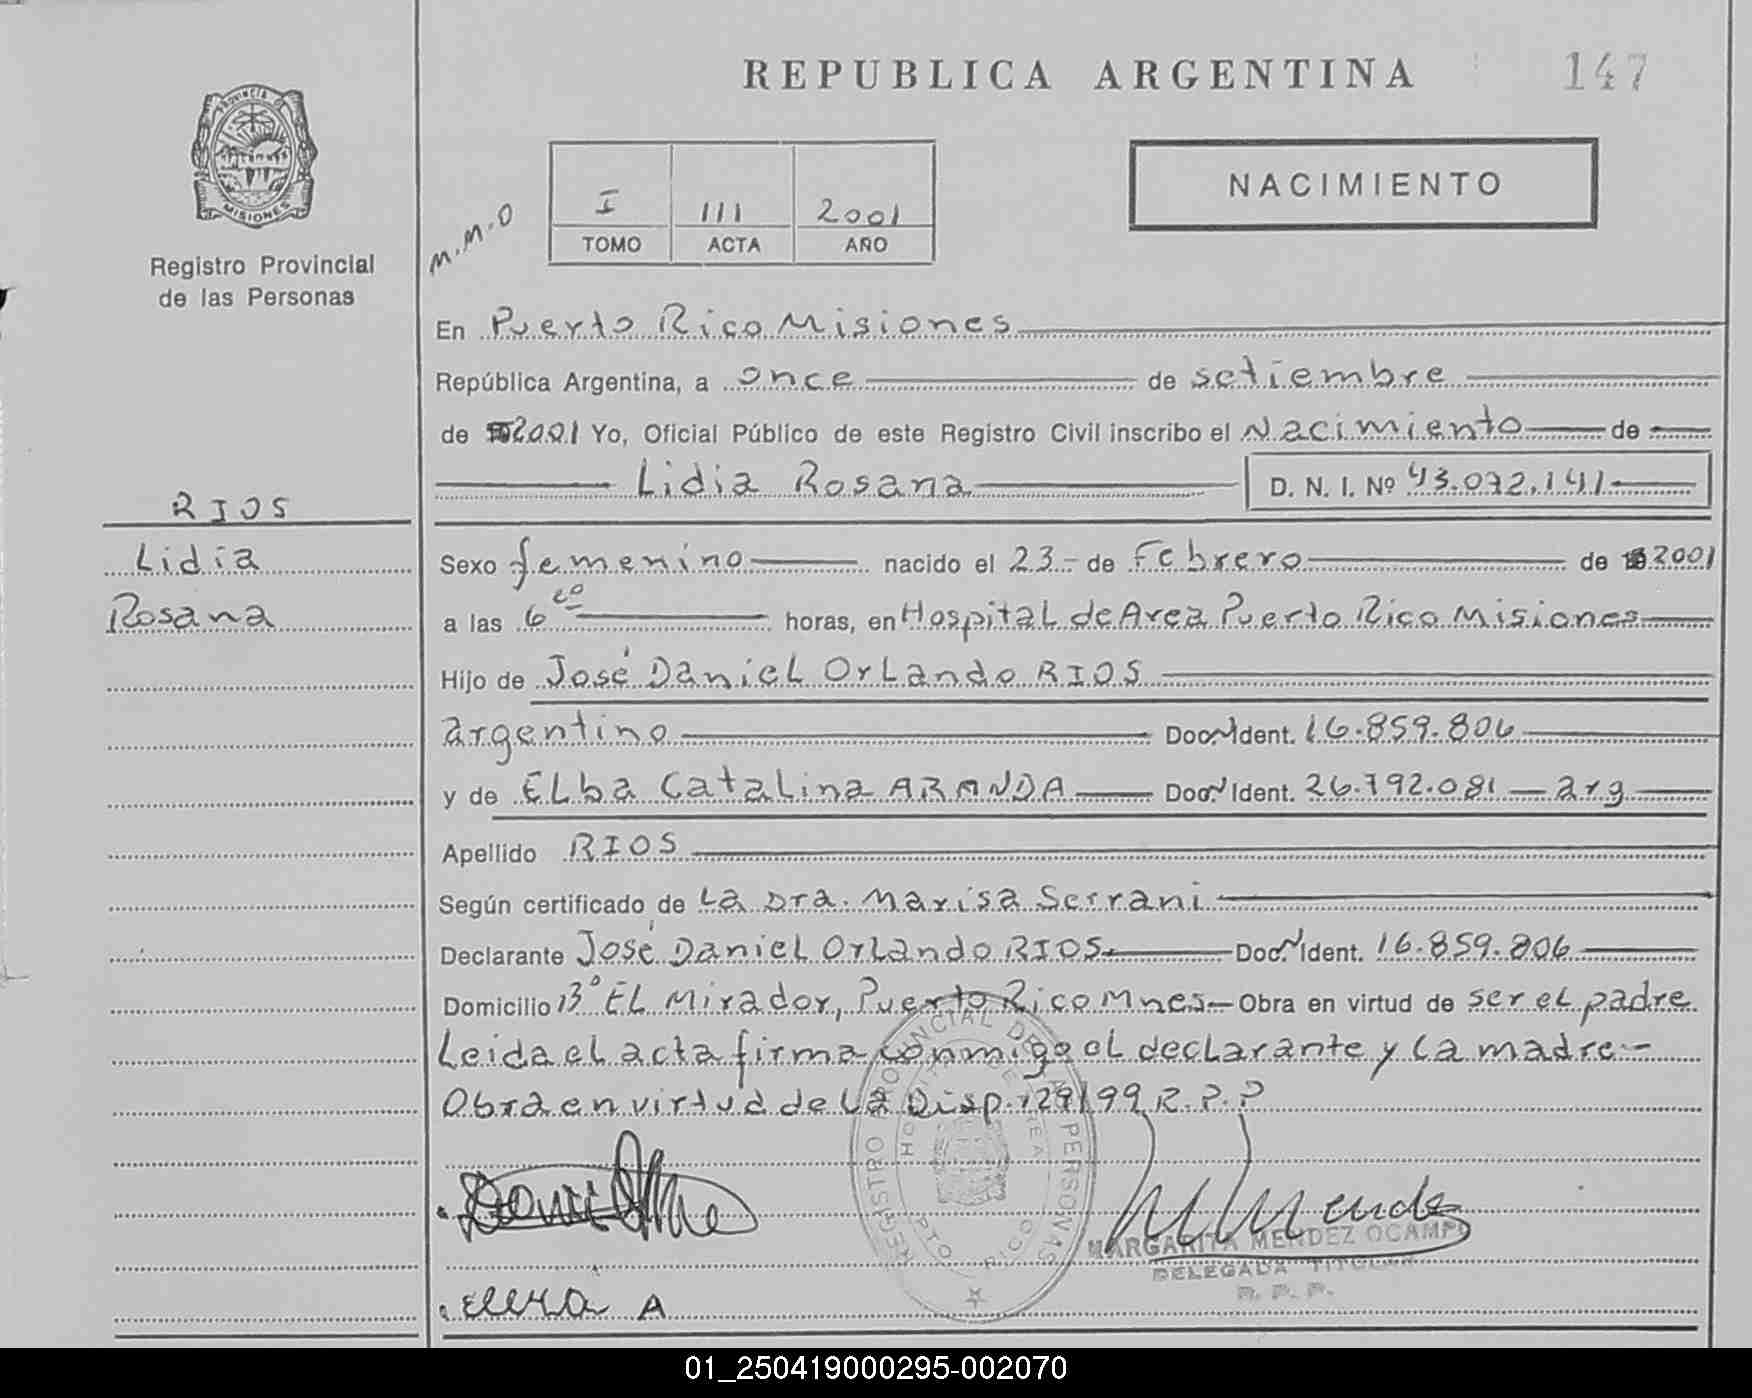 REPUBLICA ARGENTINA
147
PROVINCIA DE
MISIONES
Registro Provincial
de las Personas
M.M.O
I 111 2001
TOMO ACTA AÑO
NACIMIENTO
En Puerto Rico Misiones
República Argentina, a once de setiembre
de 2001 Yo, Oficial Público de este Registro Civil inscribo el Nacimiento de
Lidia Rosana D. N. I. Nº 43.072.141
RIOS
Lidia
Rosana
Sexo femenino nacido el 23 - de Febrero de 2001
a las 6 horas, en Hospital de Area Puerto Rico Misiones
Hijo de José Daniel Orlando RIOS
argentino Doc. N Ident. 16.859.806
y de Elba Catalina ARANDA Doc. N Ident. 26.792.081 — arg
Apellido RIOS
Según certificado de La Dra. Marisa Serrani
Declarante José Daniel Orlando RIOS Doc. N Ident. 16.859.806
Domicilio Bº El Mirador, Puerto Rico Mnes — Obra en virtud de ser el padre
Leida el acta firma conmigo el declarante y la madre.-
Obra en virtud de la Disp. 129/99 R.P.P
REGISTRO PROVINCIAL DE LAS PERSONAS
HOSPITAL DE AREA
PTO. RICO
MARGARITA MENDEZ OCAMPO
DELEGADA TITULAR
R. P. P.
01_250419000295-002070